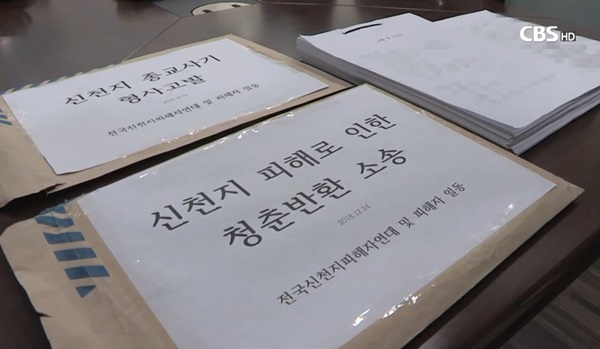 CBS HD
신천지 종교사기
형사고발
2018.12.24
전국신천지피해자연대 및 피해자 일동
신천지 피해로 인한
청춘반환 소송
2018.12.24
전국신천지피해자연대 및 피해자 일동